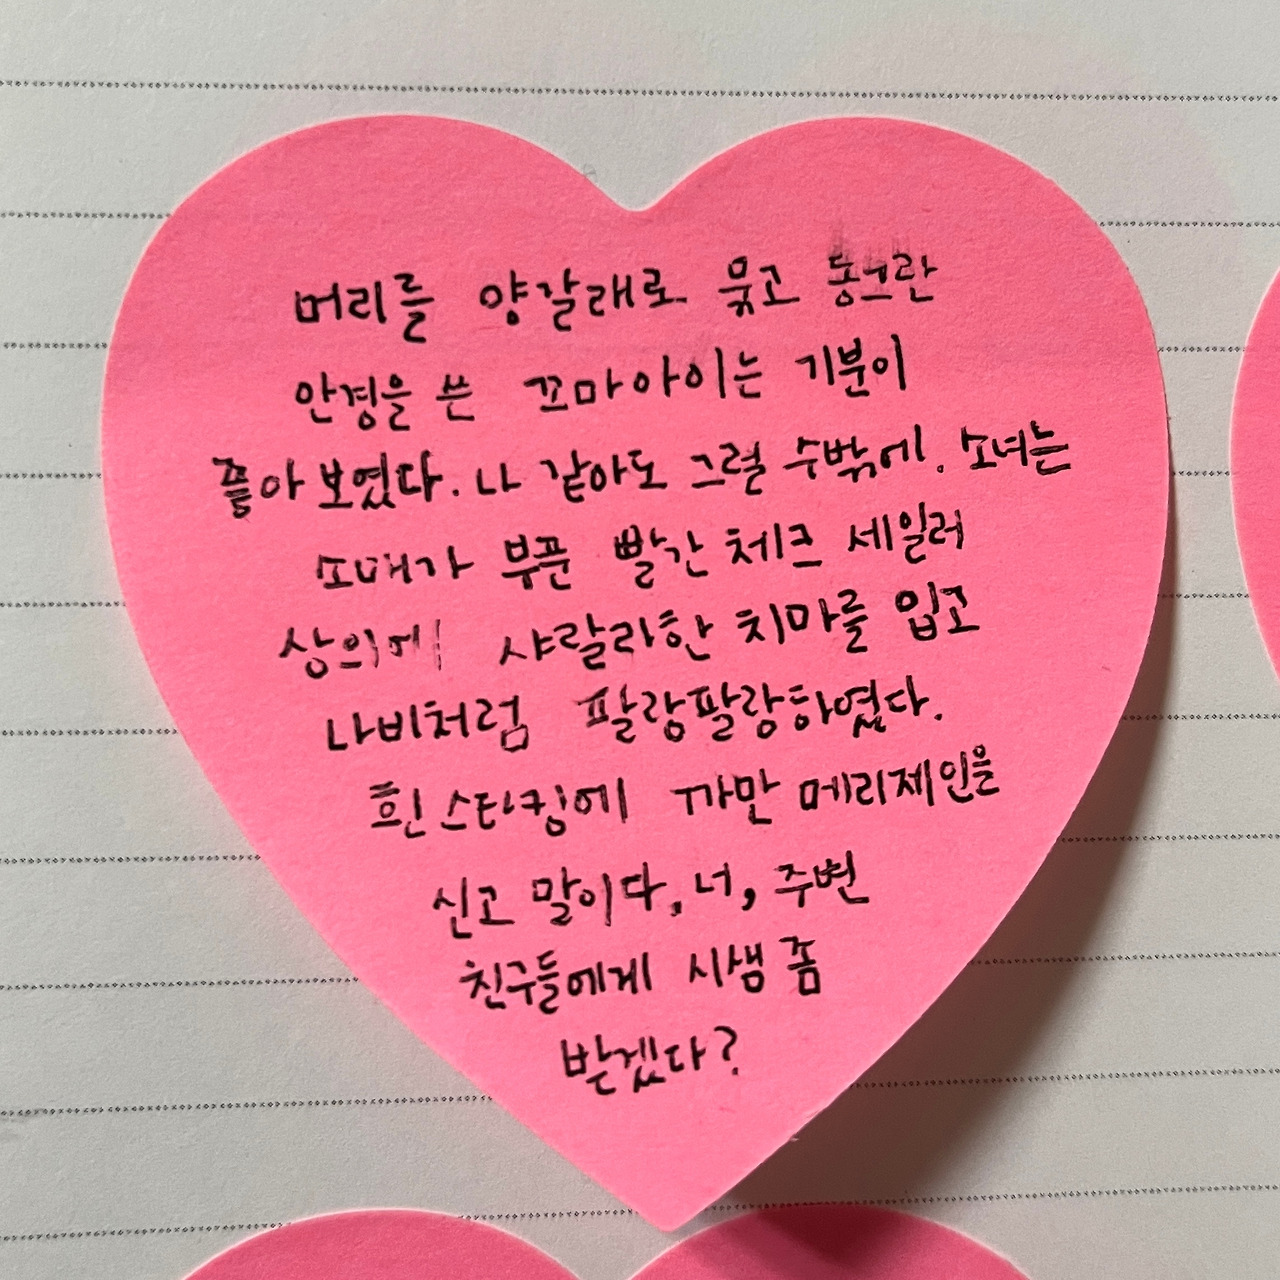 머리를 양갈래로 묶고 동그란
안경을 쓴 꼬마아이는 기분이
좋아 보였다. 나 같아도 그럴 수밖에. 소녀는
소매가 부푼 빨간 체크 세일러
상의에 샤랄라한 치마를 입고
나비처럼 팔랑팔랑하였다.
흰 스타킹에 까만 메리제인을
신고 말이다, 너, 주변
친구들에게 시샘 좀
받겠다?